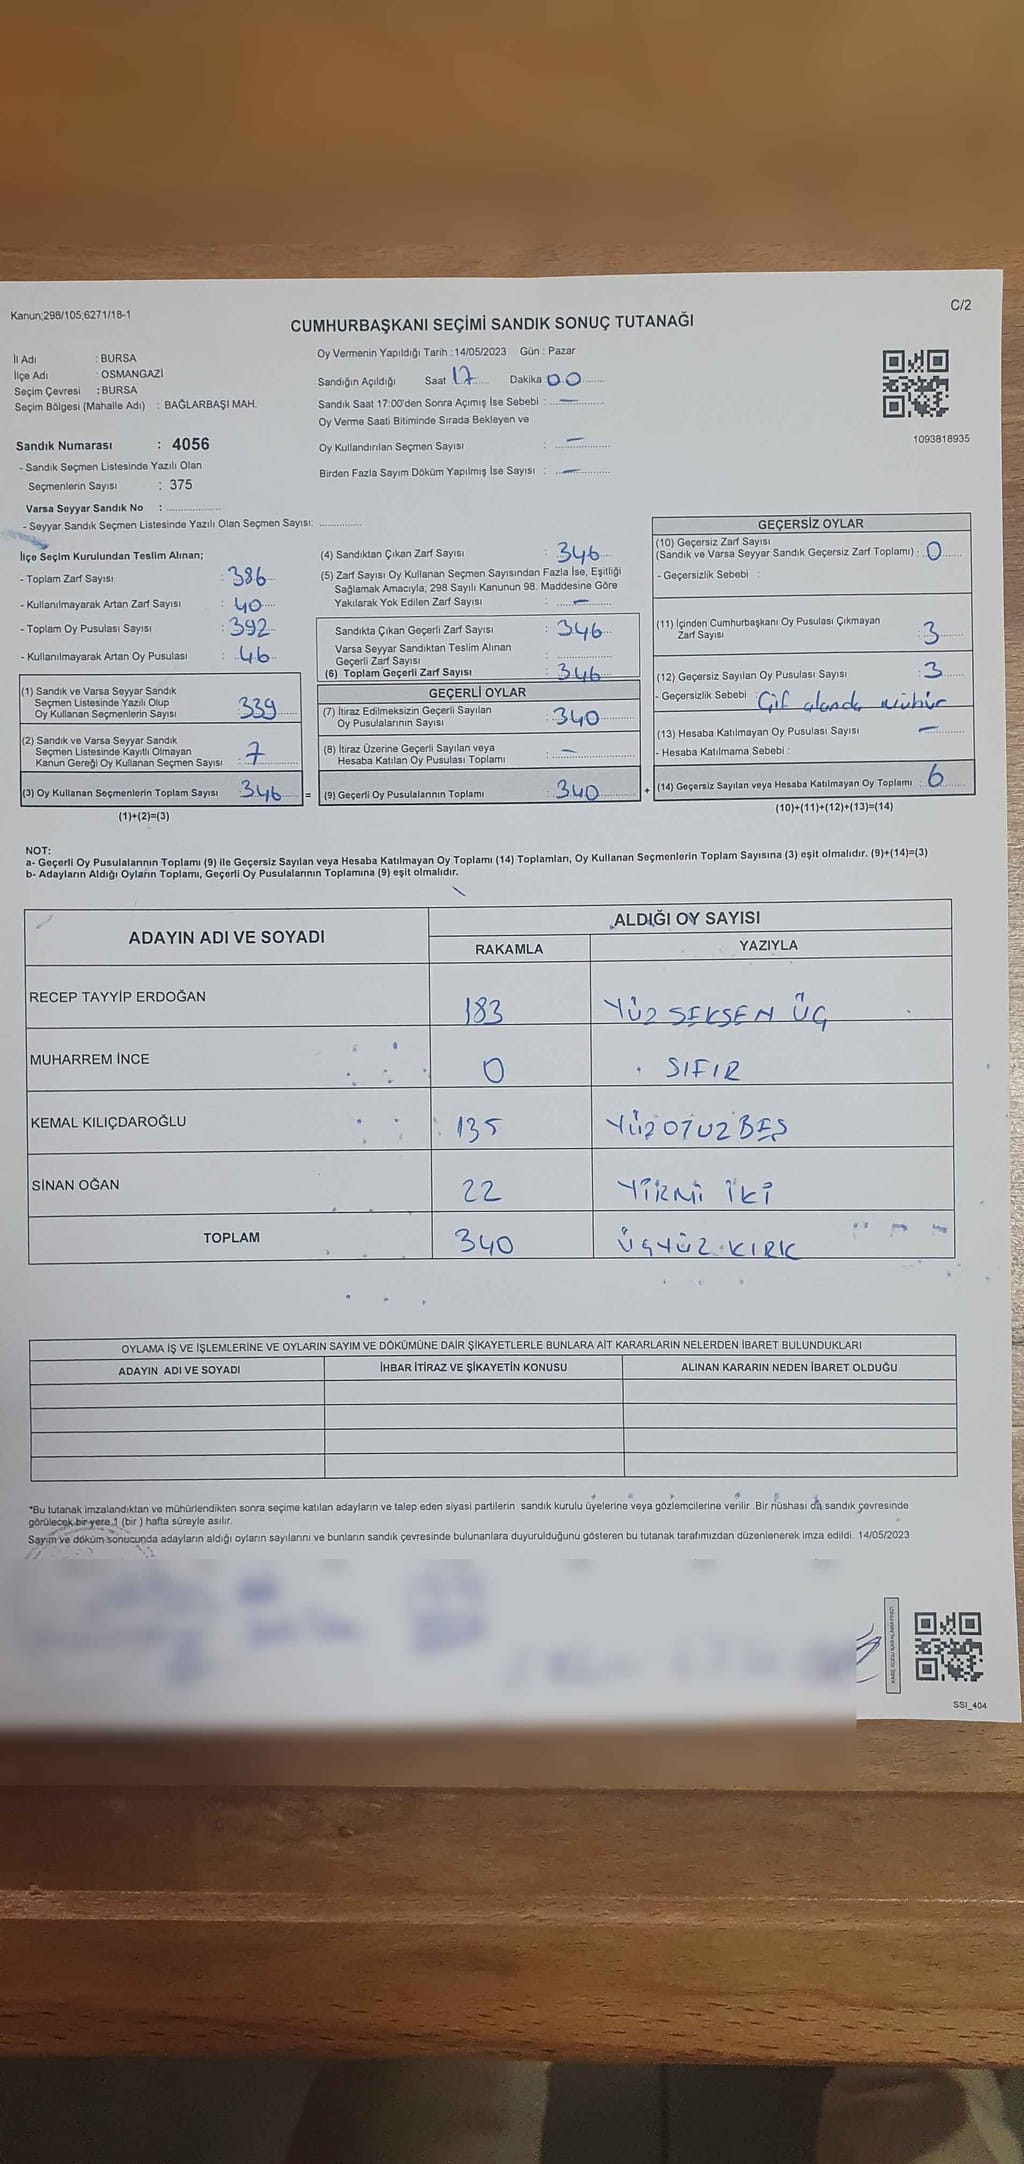 Kanun;298/105;6271/18-1
C/2
CUMHURBAŞKANI SEÇİMİ SANDIK SONUÇ TUTANAĞI
İl Adı : BURSA
İlçe Adı : OSMANGAZİ
Seçim Çevresi : BURSA
Seçim Bölgesi (Mahalle Adı) : BAĞLARBAŞI MAH.
Sandık Numarası : 4056
- Sandık Seçmen Listesinde Yazılı Olan
Seçmenlerin Sayısı : 375
Varsa Seyyar Sandık No : ....................
- Seyyar Sandık Seçmen Listesinde Yazılı Olan Seçmen Sayısı: ...............
Oy Vermenin Yapıldığı Tarih : 14/05/2023 Gün : Pazar
Sandığın Açıldığı Saat 17 Dakika 00
Sandık Saat 17:00'den Sonra Açımış İse Sebebi : —
Oy Verme Saati Bitiminde Sırada Bekleyen ve
Oy Kullandırılan Seçmen Sayısı : —
Birden Fazla Sayım Döküm Yapılmış İse Sayısı : —
1093818935
İlçe Seçim Kurulundan Teslim Alınan;
- Toplam Zarf Sayısı : 386
- Kullanılmayarak Artan Zarf Sayısı : 40
- Toplam Oy Pusulası Sayısı : 392
- Kullanılmayarak Artan Oy Pusulası : 46
(1) Sandık ve Varsa Seyyar Sandık
Seçmen Listesinde Yazılı Olup
Oy Kullanan Seçmenlerin Sayısı : 339
(2) Sandık ve Varsa Seyyar Sandık
Seçmen Listesinde Kayıtlı Olmayan
Kanun Gereği Oy Kullanan Seçmen Sayısı : 7
(3) Oy Kullanan Seçmenlerin Toplam Sayısı : 346 =
(1)+(2)=(3)
(4) Sandıktan Çıkan Zarf Sayısı : 346
(5) Zarf Sayısı Oy Kullanan Seçmen Sayısından Fazla İse, Eşitliği
Sağlamak Amacıyla; 298 Sayılı Kanunun 98. Maddesine Göre
Yakılarak Yok Edilen Zarf Sayısı : —
Sandıkta Çıkan Geçerli Zarf Sayısı : 346
Varsa Seyyar Sandıktan Teslim Alınan
Geçerli Zarf Sayısı : ...............
(6) Toplam Geçerli Zarf Sayısı : 346
GEÇERLİ OYLAR
(7) İtiraz Edilmeksizin Geçerli Sayılan
Oy Pusulalarının Sayısı : 340
(8) İtiraz Üzerine Geçerli Sayılan veya
Hesaba Katılan Oy Pusulası Toplamı : —
(9) Geçerli Oy Pusulalarının Toplamı : 340 +
GEÇERSİZ OYLAR
(10) Geçersiz Zarf Sayısı
(Sandık ve Varsa Seyyar Sandık Geçersiz Zarf Toplamı) : 0
- Geçersizlik Sebebi :
(11) İçinden Cumhurbaşkanı Oy Pusulası Çıkmayan
Zarf Sayısı : 3
(12) Geçersiz Sayılan Oy Pusulası Sayısı : 3
- Geçersizlik Sebebi : Çif alanda mühür
(13) Hesaba Katılmayan Oy Pusulası Sayısı : —
- Hesaba Katılmama Sebebi :
(14) Geçersiz Sayılan veya Hesaba Katılmayan Oy Toplamı : 6
(10)+(11)+(12)+(13)=(14)
NOT:
a- Geçerli Oy Pusulalarının Toplamı (9) ile Geçersiz Sayılan veya Hesaba Katılmayan Oy Toplamı (14) Toplamları, Oy Kullanan Seçmenlerin Toplam Sayısına (3) eşit olmalıdır. (9)+(14)=(3)
b- Adayların Aldığı Oyların Toplamı, Geçerli Oy Pusulalarının Toplamına (9) eşit olmalıdır.
ADAYIN ADI VE SOYADI ALDIĞI OY SAYISI
RAKAMLA YAZIYLA
RECEP TAYYİP ERDOĞAN 183 YÜZ SEKSEN ÜÇ
MUHARREM İNCE 0 SIFIR
KEMAL KILIÇDAROĞLU 135 YÜZ OTUZ BEŞ
SİNAN OĞAN 22 YİRMİ İKİ
TOPLAM 340 ÜÇYÜZ KIRK
OYLAMA İŞ VE İŞLEMLERİNE VE OYLARIN SAYIM VE DÖKÜMÜNE DAİR ŞİKAYETLERLE BUNLARA AİT KARARLARIN NELERDEN İBARET BULUNDUKLARI
ADAYIN ADI VE SOYADI İHBAR İTİRAZ VE ŞİKAYETİN KONUSU ALINAN KARARIN NEDEN İBARET OLDUĞU
*Bu tutanak imzalandıktan ve mühürlendikten sonra seçime katılan adayların ve talep eden siyasi partilerin sandık kurulu üyelerine veya gözlemcilerine verilir .Bir nüshası da sandık çevresinde
görülecek bir yere 1 (bir ) hafta süreyle asılır.
Sayım ve döküm sonucunda adayların aldığı oyların sayılarını ve bunların sandık çevresinde bulunanlara duyurulduğunu gösteren bu tutanak tarafımızdan düzenlenerek imza edildi. 14/05/2023
SSI_404